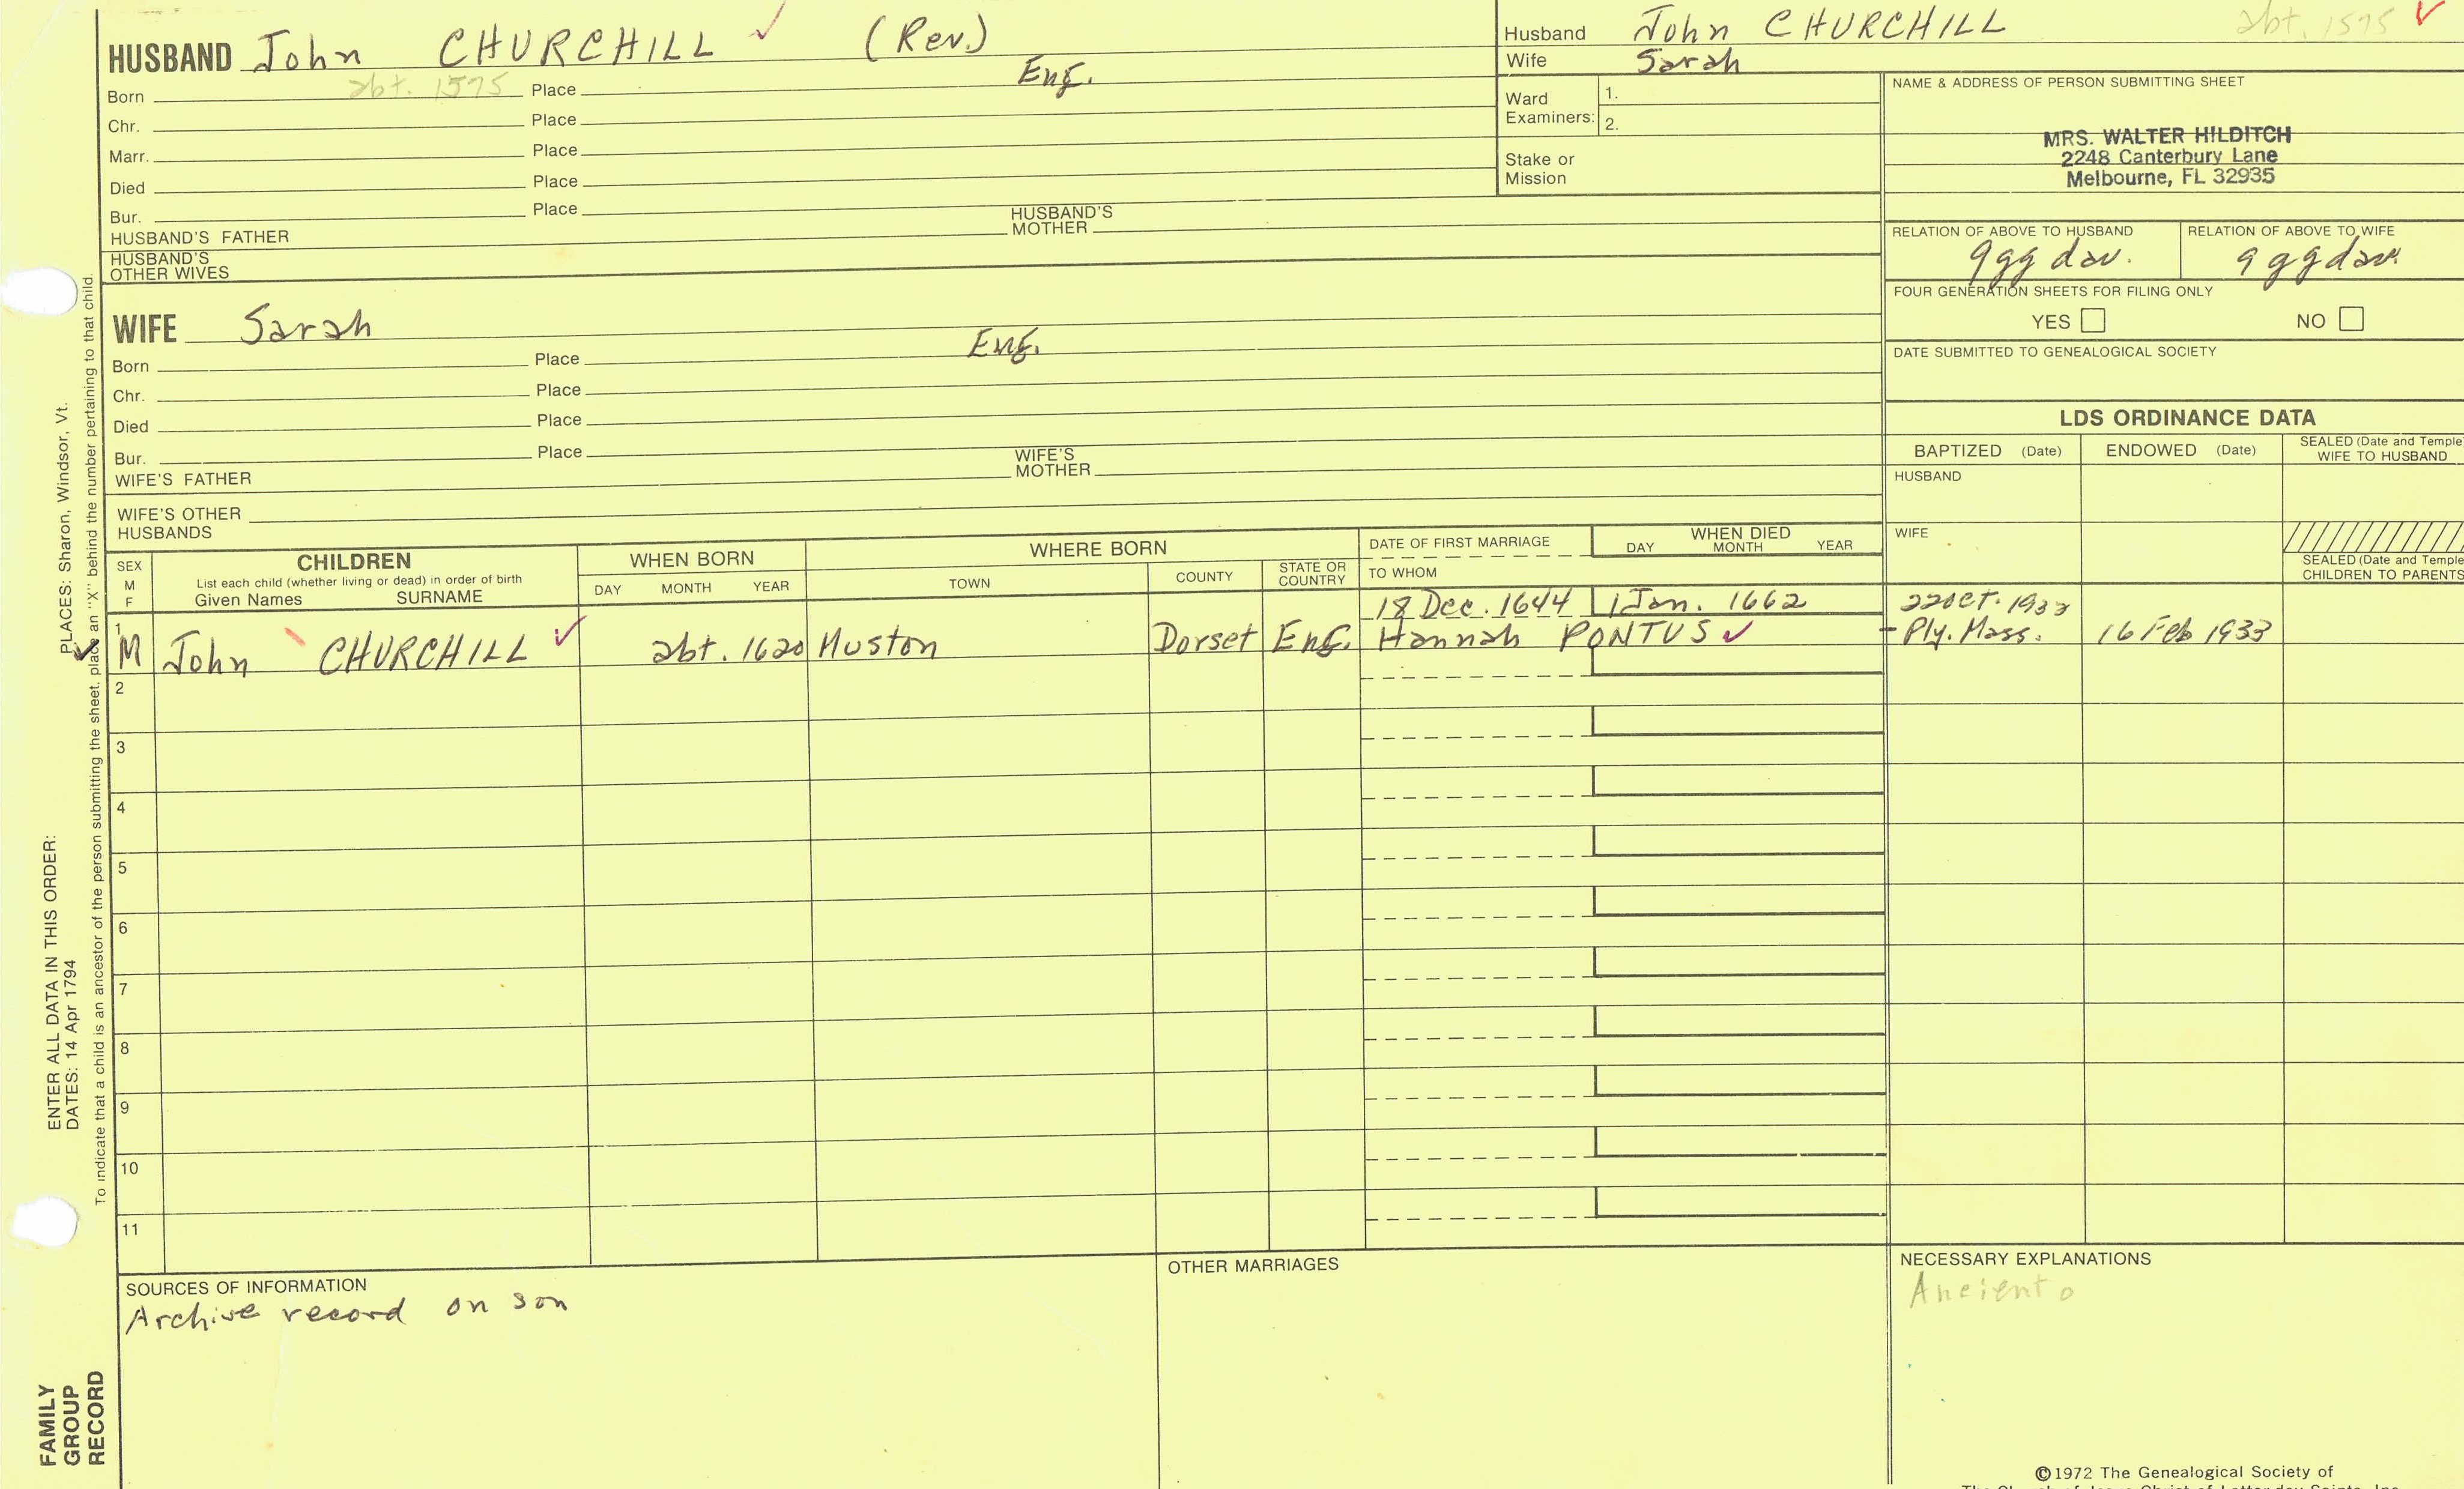 HUSBAND John CHURCHILL ✓ (Rev.)
Born abt. 1575 Place Eng.
Chr. Place
Marr. Place
Died Place
Bur. Place
HUSBAND'S FATHER HUSBAND'S MOTHER
HUSBAND'S OTHER WIVES
WIFE Sarah
Born Place Eng.
Chr. Place
Died Place
Bur. Place
WIFE'S FATHER WIFE'S MOTHER
WIFE'S OTHER HUSBANDS
Husband John CHURCHILL abt. 1575 ✓
Wife Sarah
Ward Examiners: 1.
2.
Stake or Mission
NAME & ADDRESS OF PERSON SUBMITTING SHEET
MRS. WALTER HILDITCH
2248 Canterbury Lane
Melbourne, FL 32935
RELATION OF ABOVE TO HUSBAND RELATION OF ABOVE TO WIFE
9gg dau. 9ggdau.
FOUR GENERATION SHEETS FOR FILING ONLY
YES NO
DATE SUBMITTED TO GENEALOGICAL SOCIETY
LDS ORDINANCE DATA
BAPTIZED (Date) ENDOWED (Date) SEALED (Date and Temple
WIFE TO HUSBAND
HUSBAND
WIFE
SEALED (Date and Temple
CHILDREN TO PARENTS
SEX M F
CHILDREN
List each child (whether living or dead) in order of birth
Given Names SURNAME
WHEN BORN
DAY MONTH YEAR
WHERE BORN
TOWN COUNTY STATE OR COUNTRY
DATE OF FIRST MARRIAGE
TO WHOM
WHEN DIED
DAY MONTH YEAR
18 Dec. 1644 1 Jan. 1662 22 Oct. 1933
1 M John CHURCHILL ✓ abt. 1620 Muston Dorset Eng. Hannah PONTUS ✓ - Ply. Mass. 16 Feb 1933
2
3
4
5
6
7
8
9
10
11
SOURCES OF INFORMATION
Archive record on son
OTHER MARRIAGES
NECESSARY EXPLANATIONS
Ancient o
©1972 The Genealogical Society of
The Church of Jesus Christ of Latter-day Saints, Inc.
PLACES: Sharon, Windsor, Vt.
ENTER ALL DATA IN THIS ORDER:
DATES: 14 Apr 1794
To indicate that a child is an ancestor of the person submitting the sheet, place an "X" behind the number pertaining to that child.
FAMILY
GROUP
RECORD